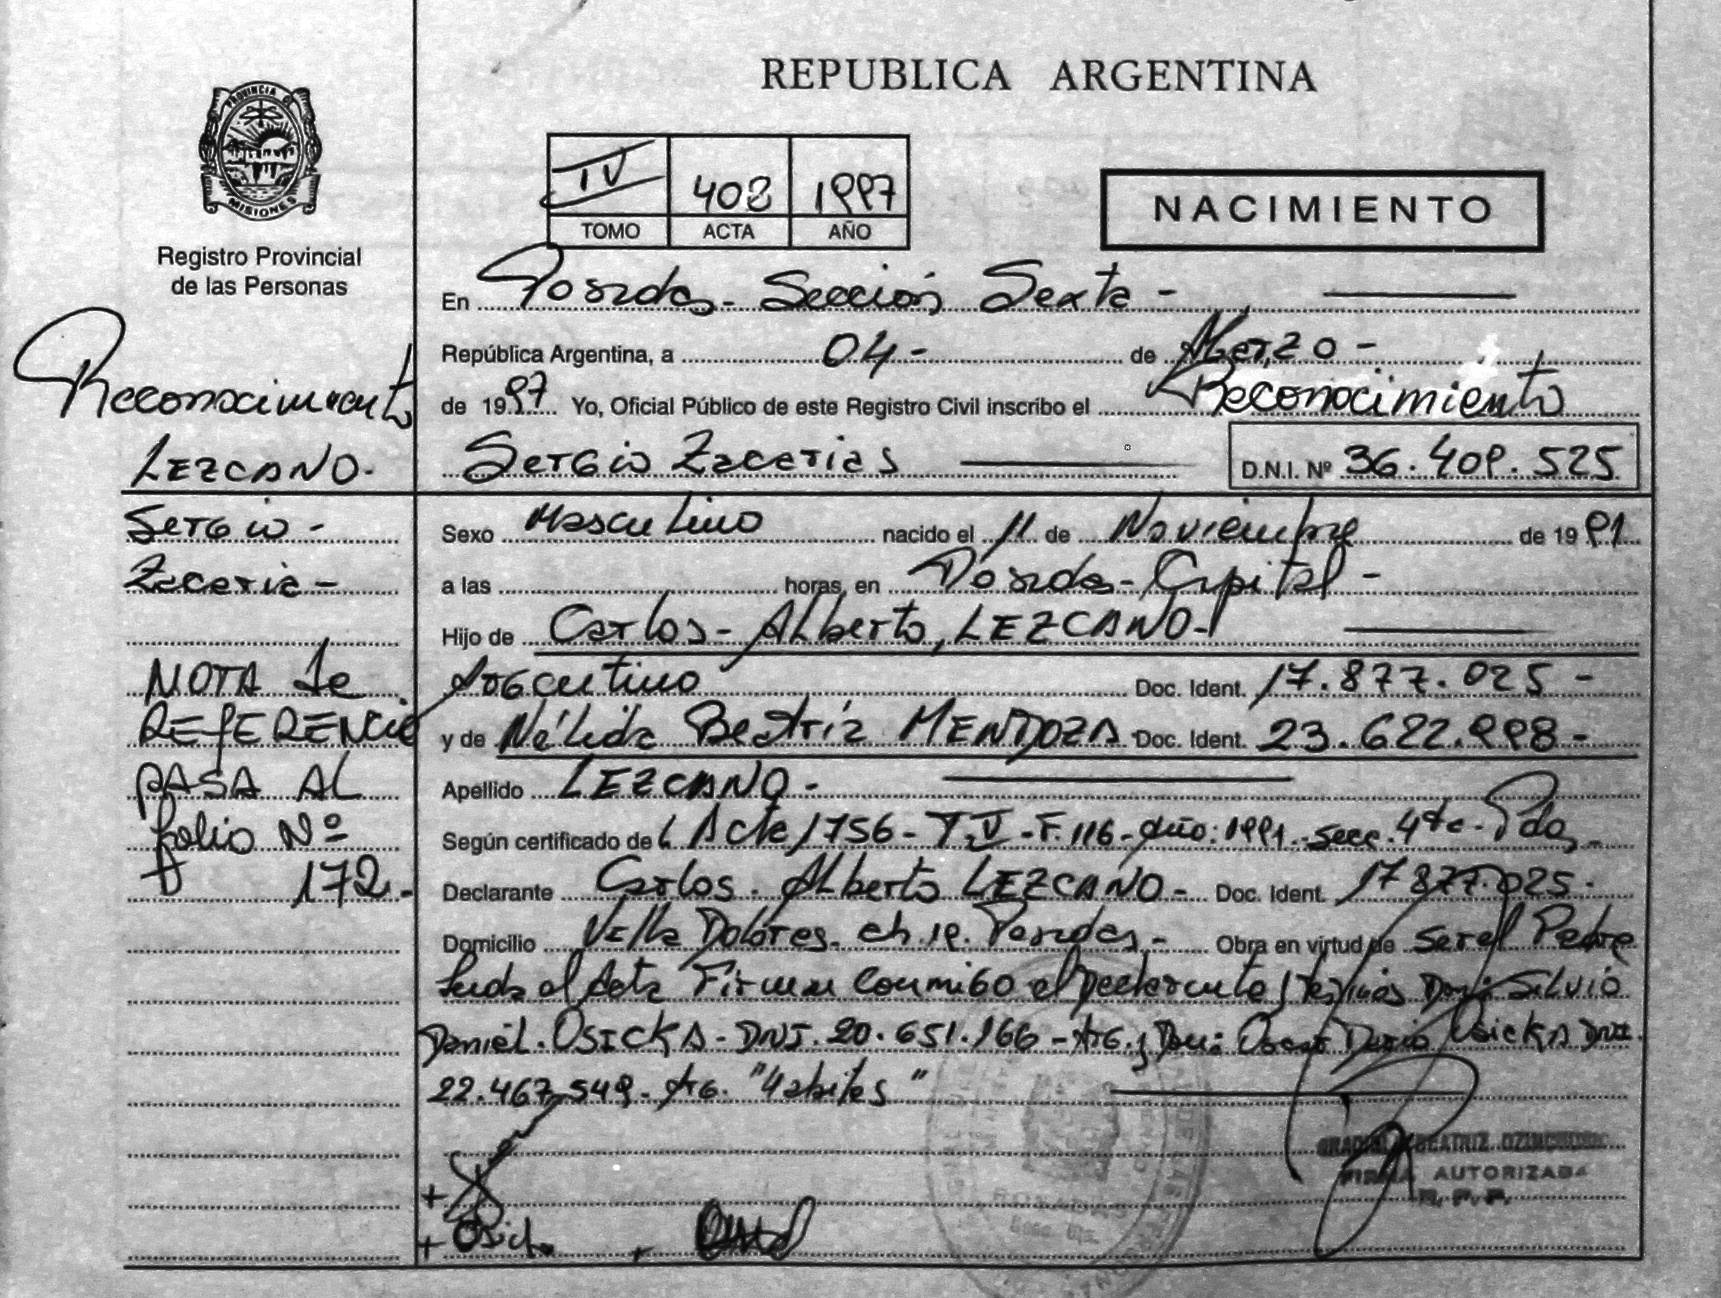 REPUBLICA ARGENTINA
PROVINCIA DE
MISIONES
Registro Provincial
de las Personas
IV 408 1997
TOMO ACTA AÑO
NACIMIENTO
En Posadas - Sección Sexta -
República Argentina, a 04 - de Marzo -
de 1997 Yo, Oficial Público de este Registro Civil inscribo el Reconocimiento
Sergio Zacarias D.N.I. Nº 36.409.525
Sexo Masculino nacido el 11 de Noviembre de 1991
a las horas, en Posadas - Capital -
Hijo de Carlos - Alberto, LEZCANO -
Argentino Doc. Ident. 17.877.025 -
y de Nélida Beatriz MENDOZA Doc. Ident. 23.622.998 -
Apellido LEZCANO -
Según certificado de Acta 1756 - T.V - F. 116 - Año: 1991 - Secc. 4ta - Pdas -
Declarante Carlos - Alberto LEZCANO - Doc. Ident. 17877.025 -
Domicilio Villa Dolores - ch. 19. Posadas - Obra en virtud de ser el Padre
Leida el Acta Firman conmigo el testigos Don: Silvio
Daniel. OSICKA - DNI. 20.651.166 - Arg. y Don: Oscar Dario OSICKA DNI.
22.467.549 - Arg. "Habiles"
Reconocimiento
LEZCANO -
Sergio -
Zacaria -
NOTA de
REFERENCIA
PASA AL
folio Nº
172 -
BEATRIZ
FIRMA AUTORIZADA
R. P. P.